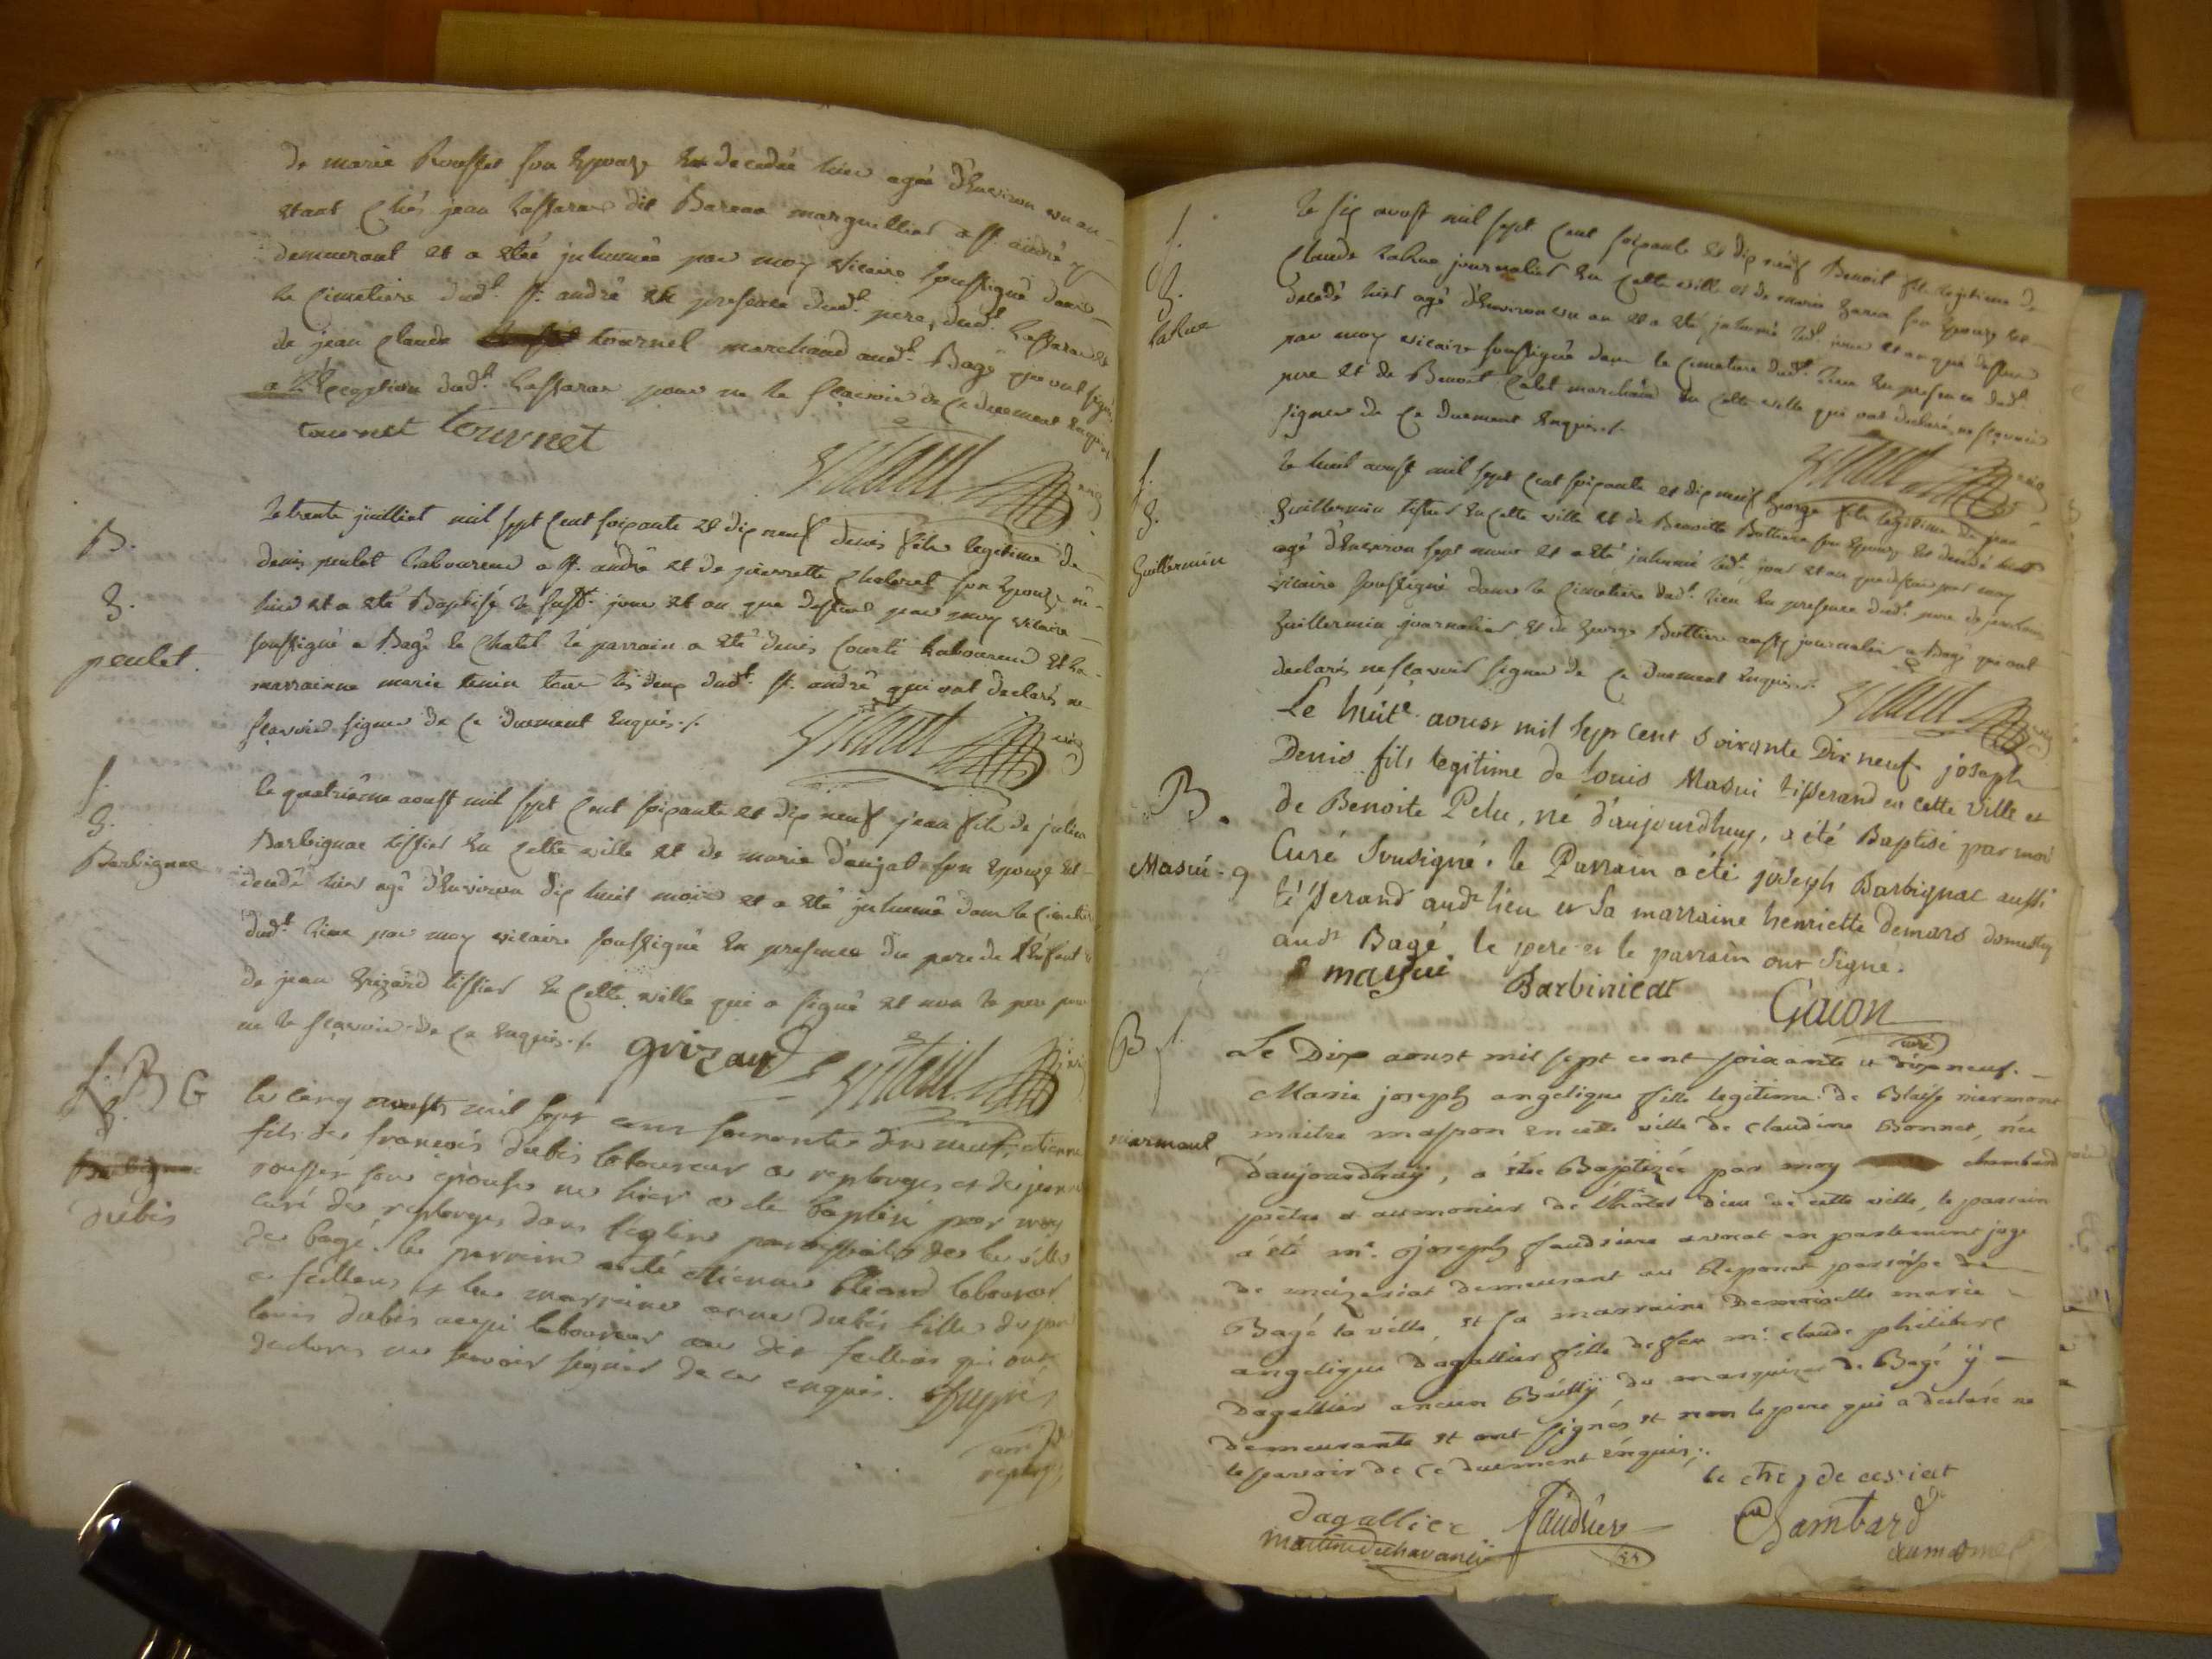 de marie Rousset son Epouse Est decedée hier agée d'Environ un an
Etant chés jean Lassarar dit Bareau marguillier a st. andré y
demeurant et a etée inhumée par moy vicaire soussigné dans
le Cimetiere dudt. st. andré En presence dudt. pere, dudt. Lassarar et
de jean claude tournet marchand audt. Bagé qui ont signé
a l'Exception dudt. Lassarar pour ne le sçavoir de ce duement Enquis
tournet tournet
B.
g.
peulet.
Le trente juilliet mil sept Cent soixante et dix neuf denis fils legitime de
denis peulet Laboureur a st. andré et de pierrette Chaleret son Epouse né
hier et a eté Baptisé le susdt. jour et an que dessus par moy vicaire
soussigné a Bagé le Chatel le parrain a eté denis Courti Laboureur et la
marrainne marie tenin tous les deux dudt. st. andré qui ont declaré ne
sçavoir signer de ce duement Enquis./.
f.
g.
Barbignac
le quatrieme aoust mil sept Cent soixante et dix neuf jean fils de julien
Barbignac tissier En cette ville et de marie d'aujat son Epouse Est
decedé hier agé d'Environ dix huit mois et a eté inhumé dans le Cimetiere
dudt. Lieu par moy vicaire soussigné En presence du pere de l'Enfant
de jean Grizard tissier En cette ville qui a signé et non le pere pour
ne le sçavoir de ce Enquis./. grizard
f. B G
g.
dubis
le cinq aoust mil sept cent soixante dix neuf, etienne
fils de françois dubis laboureur a replonges et de jeanne
rousset son epouse ne hier a ete baptisé par moy
curé de replonges dans l'eglise paroissialle de la ville
de bagé. le parrain a eté etienne laboureur
a feillens et la marraine anne dubis fille de
louis dubis aussi laboureur au dit feillens qui ont
declaré ne savoir signer de ce enquis.
curé de
replonges
f.
g.
Larue
le six aoust mil sept Cent soixante et dix neuf Benoit fils legitime de
Claude Larue journalier En cette ville et de marie son Epouse est
decedé hier agé d'Environ un an et a eté inhumé ledt. jour et an que dessus
par moy vicaire soussigné dans le Cimetiere dudt. Lieu En presence dudt.
pere et de Benoit Calet marchand En cette ville qui ont declaré ne sçavoir
signer de ce duement Enquis./.
f.
g.
Guillermin
le huit aoust mil sept Cent soixante et dix neuf George fils legitime de jean
Guillermin tissier En cette ville et de Benoitte Buttiere son Epouse Est decedé
agé d'Environ sept mois et a eté inhumé ledt. jour et an que dessus par moy
vicaire soussigné dans le Cimetiere dudt. Lieu En presence dudt. pere de
Guillermin journalier et de George Buttiere aussy journalier a Bagé qui ont
declarés ne sçavoir signer de ce duement Enquis./.
B.
Masüi - g
Le huite. aoust mil sept cent soixante Dix neuf joseph
Denis fils legitime de Louis Masui tisserand en cette ville et
de Benoite Pelu, né d'aujourdhuy, a été Baptisé par moi
Curé Sousigné. le Parrain a été joseph Barbignac aussi
tisserand audt lieu et Sa marraine henriette Demars domestiq
audt Bagé le pere et le parrain ont signe.
masui Barbinicat Gacon
curé
B f.
niarmont
Le Dix aoust mil sept cent soixante et dix neuf.
Marie joseph angelique fille legitime de Blaise niermont
maitre masson en cette ville de claudine Bonnet, née
d'aujourdhuy, a été Baptizée par moy chambard
prêtre et aumonier de l'hotel dieu de cette ville, le parrain
a été mr. joseph faudrier avocat en parlement juge
de demeurant au paroisse de
Bagé la ville, et sa marraine Demoiselle marie
angelique Dagallier fille de feu mr. claude philibert
Dagallier ancien Bailly du marquisat de Bagé y
demeurante et ont signés et non le pere qui a declaré ne
le savoir de ce duement enquis./.
le cher de cesseiat
dagallier faudrier Chambard
aumonier